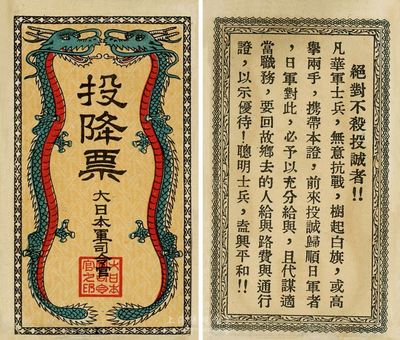 投降票
大日本軍司令官
大日本
軍司令
官之印
絕對不殺投誠者!!
凡華軍士兵，無意抗戰，樹起白旗，或高
擧兩手，携帶本證，前來投誠歸順日軍者
，日軍對此，必予以充分給與，且代謀適
當職務，要回故鄕去的人給與路費與通行
證，以示優待！聰明士兵，盍興平和!!